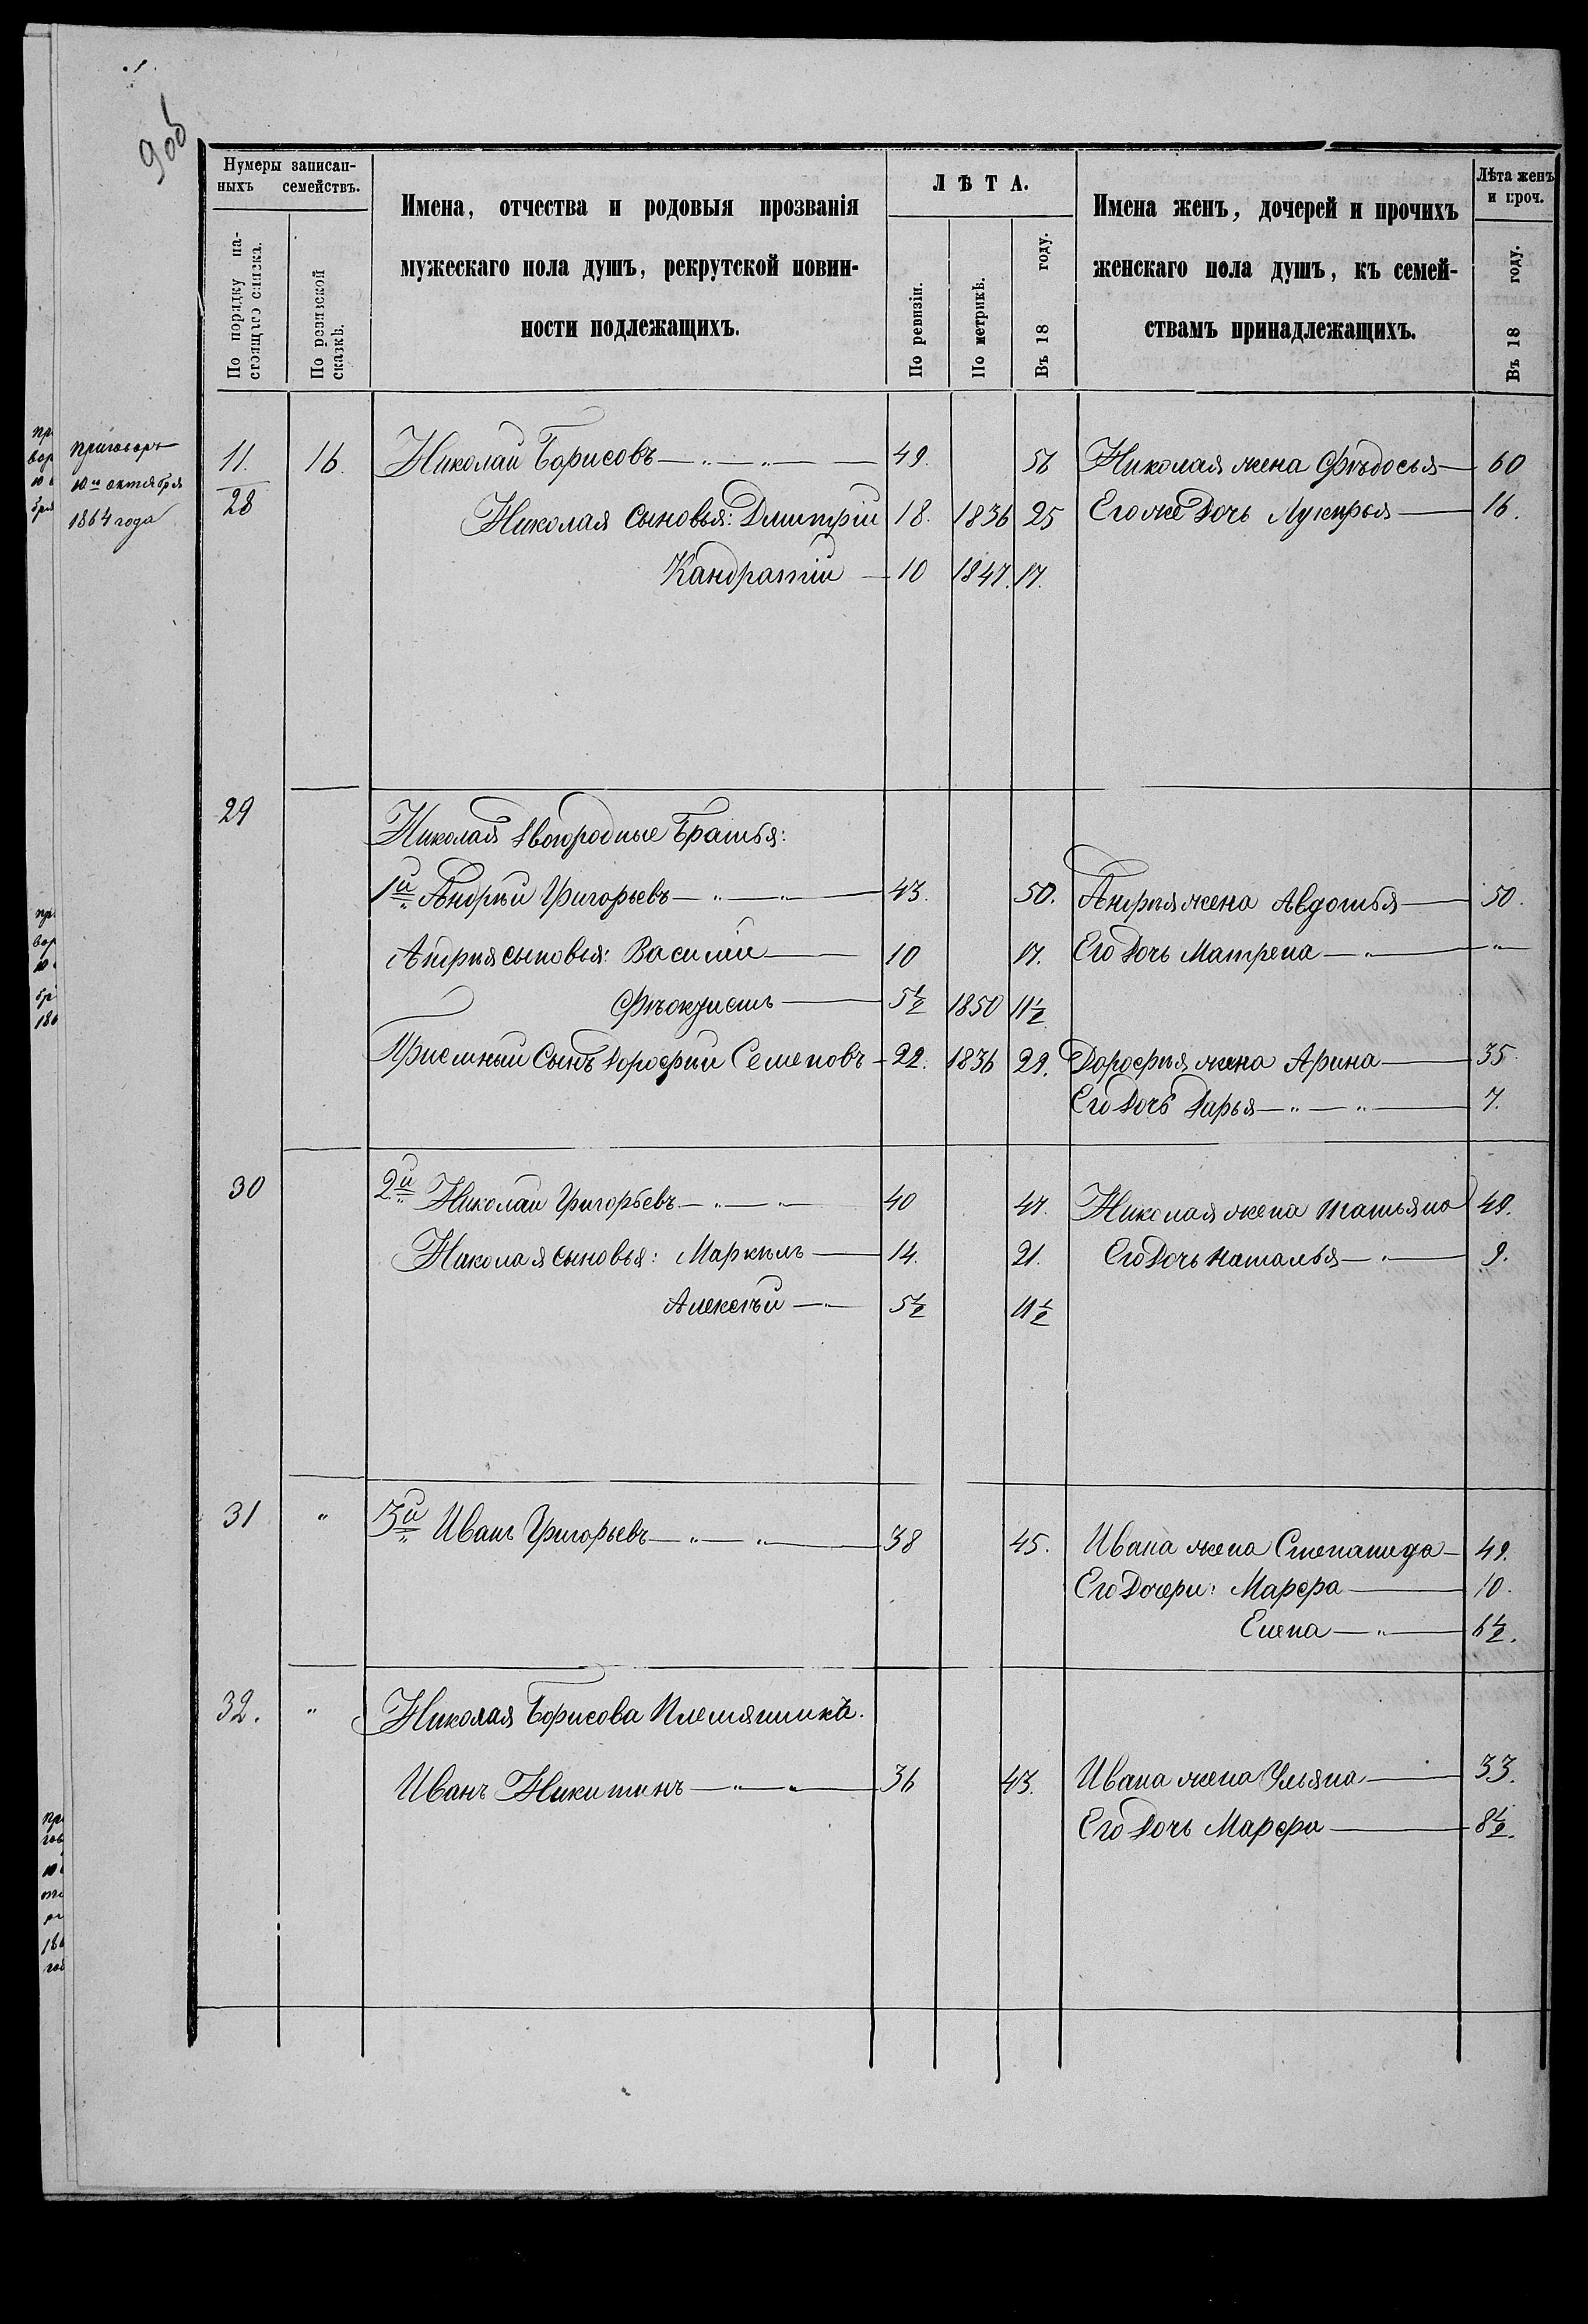 9об
Нумеры записан-
ныхъ семействъ.
По порядку на-
стоящаго списка.
По ревизской
сказкѣ.
Имена, отчества и родовыя прозванія
мужескаго пола душъ, рекрутской повин-
ности подлежащихъ.
ЛѢТА.
По ревизіи.
По метрикѣ.
Въ 18 году.
Имена женъ, дочерей и прочихъ
женскаго пола душъ, къ семей-
ствамъ принадлежащихъ.
Лѣта женъ
и проч.
Въ 18 году.
приговоръ
10го октября
1864 года
11. 16. Николай Борисовъ — " — " — 49. 56 Николая жена Фѣдосья — 60
28 Николая сыновья: Дмитрій 18. 1836 25 Его же дочь Лукирья — 16.
Кандратій — 10 1847. 17.
29
Николая двоюродные братья:
1й Андрѣй Григорьевъ — " — " — 43. 50. Андрѣя жена Авдотья — 50.
Андрѣя сыновья: Василій — 10 17. Его дочь Матрена — " — "
Фѣоктистъ — 5½ 1850 11½
Пріемный сынъ Дорофѣй Семеновъ — 22. 1836 29. Дорофѣя жена Арина — 35.
Его дочь Дарья — " — " — 7.
30 2й Николай Григорьевъ — " — " 40 47. Николая жена Татьяна 49.
Николая сыновья: Маркѣлъ — 14. 21. Его дочь Наталья — " — 9.
Алексѣй — " — 5½ 11½
31 " 3й Иванъ Григорьевъ — " — " — 38 45. Ивана жена Степанида — 49.
Его дочери: Марфа — 10.
Елена — " — 6½.
32. " Николая Борисова племянникъ.
Иванъ Никитинъ — " — " — 36 43. Ивана жена Ульяна — 33.
Его дочь Марфа — 8½.